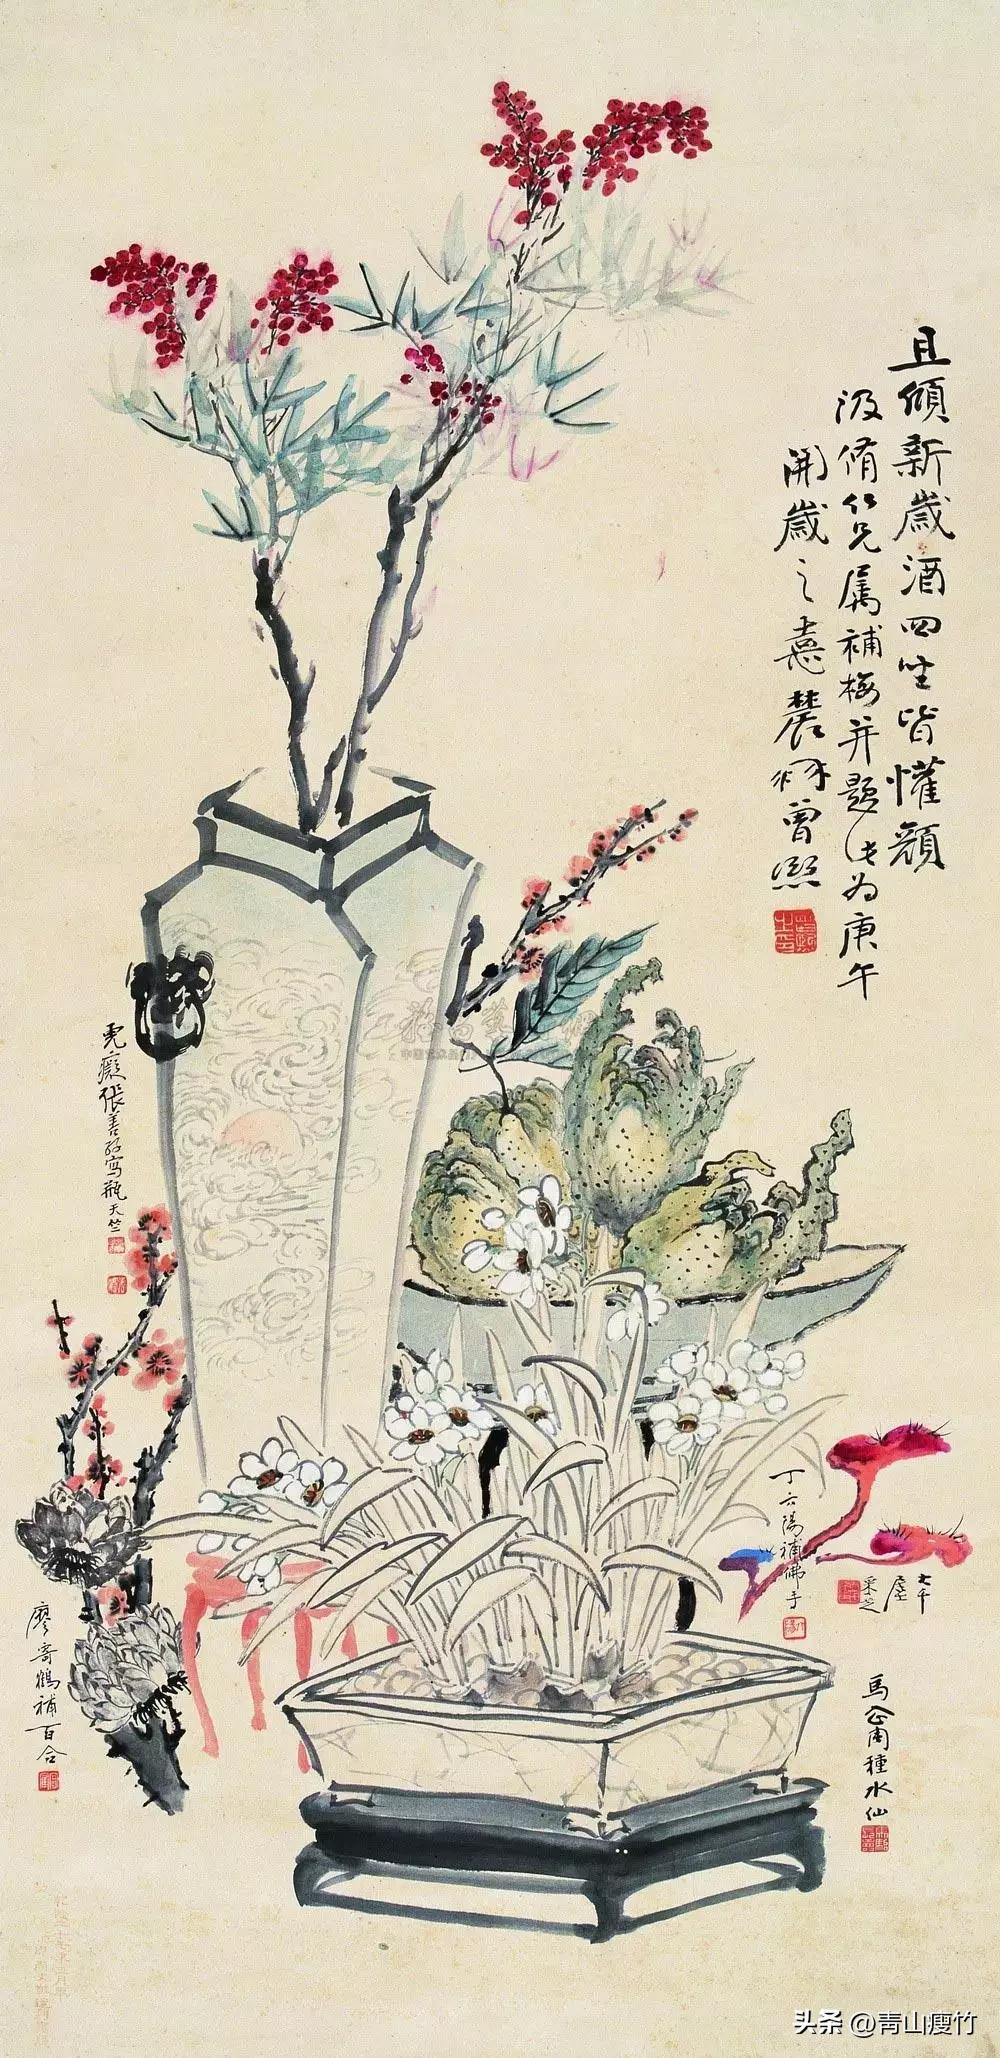 且傾新歲酒四坐皆懽顔
汲脩仁兄属補梅并題時为庚午
開歲之憙農髯曾熙
虎癡張善孖寫瓶天竺
廖寄鶴補百合
丁六陽補佛手
大千居士采芝
馬企周種水仙
头条 @青山瘦竹